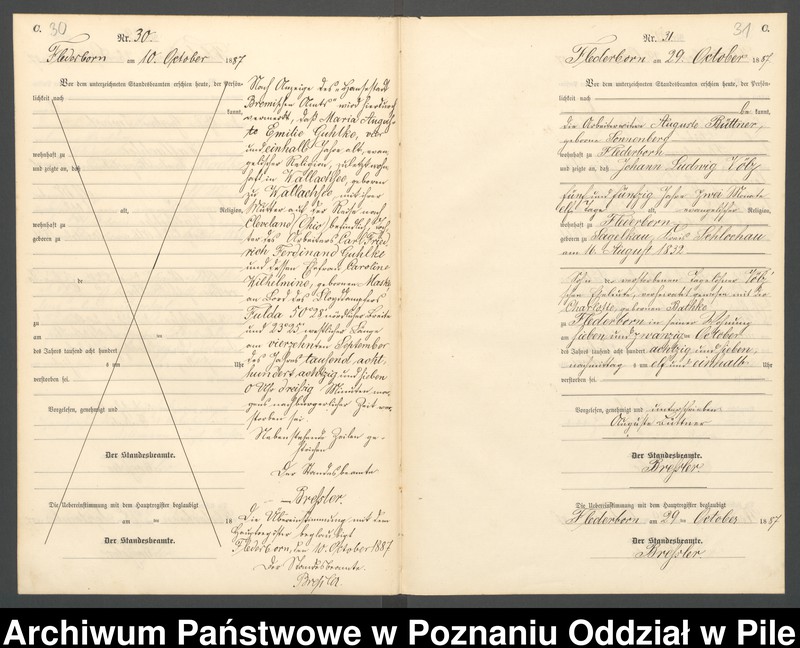 C. 30
Nr. 30.
Flederborn am 10. October 1887
Vor dem unterzeichneten Standesbeamten erschien heute, der Persön-
lichkeit nach
kannt,
wohnhaft zu
und zeigte an, daß
alt, Religion,
wohnhaft zu
geboren zu
de
zu
am ten
des Jahres tausend acht hundert
um Uhr
verstorben sei.
Vorgelesen, genehmigt und
Der Standesbeamte.
Die Uebereinstimmung mit dem Hauptregister beglaubigt
am ten 18
Der Standesbeamte.
Nach Anzeige des "Hansestadt
Bremischen Amts" wird hierdurch
vermerkt, daß Maria Augus-
te Emilie Guhlke, vier
und einhalb Jahre alt, evan-
gelischer Religion, zuletzt wohn-
haft in Wallachsee, geboren
zu Wallachsee, mit ihrer
Mutter auf der Reise nach
Cleveland Ohio befindlich, Toch-
ter des Arbeiters Carl Fried-
rich Ferdinand Guhlke
und dessen Ehefrau Caroline
Wilhelmine, geborenen Maske
an Bord des Lloyddampfers
Fulda 50°25' nördlicher Breite
und 23°25' westlicher Länge
am vierzehnten September
des Jahres tausend acht-
hundert achtzig und sieben
0 Uhr dreißig Minuten mor-
gens nach bürgerlicher Zeit ver-
storben sei
Nebenstehende Zeilen ge-
strichen
Der Standesbeamte
Breßler
Die Übereinstimmung mit dem
Hauptregister beglaubigt
Flederborn, den 10. October 1887
Der Standesbeamte.
Breßler
31 C.
Nr. 31.
Flederborn am 29. October 1887.
Vor dem unterzeichneten Standesbeamten erschien heute, der Persön-
lichkeit nach
be kannt,
die Arbeiterwitwe Auguste Büttner,
geborene Sonnenberg
wohnhaft zu Flederborn
und zeigte an, daß Johann Ludwig Völz
fünf und fünfzig Jahr zwei Monate
elf Tage alt, evangelischer Religion,
wohnhaft zu Flederborn
geboren zu Sagelkau, Kreis Schlochau
am 16. August 1832
Sohn der verstorbenen Tagelöhner Völz-
schen Eheleute, verheiratet gewesen mit der
Charlotte geborenen Rathke
zu Flederborn in seiner Wohnung
am sieben und zwanzig ten October
des Jahres tausend acht hundert achtzig und sieben
nachmittag s um elf und einhalb Uhr
verstorben sei.
Vorgelesen, genehmigt und unterschrieben
Auguste Büttner
Der Standesbeamte.
Breßler
Die Uebereinstimmung mit dem Hauptregister beglaubigt
Flederborn am 29 ten October 1887
Der Standesbeamte.
Breßler.
Archiwum Państwowe w Poznaniu Oddział w Pile